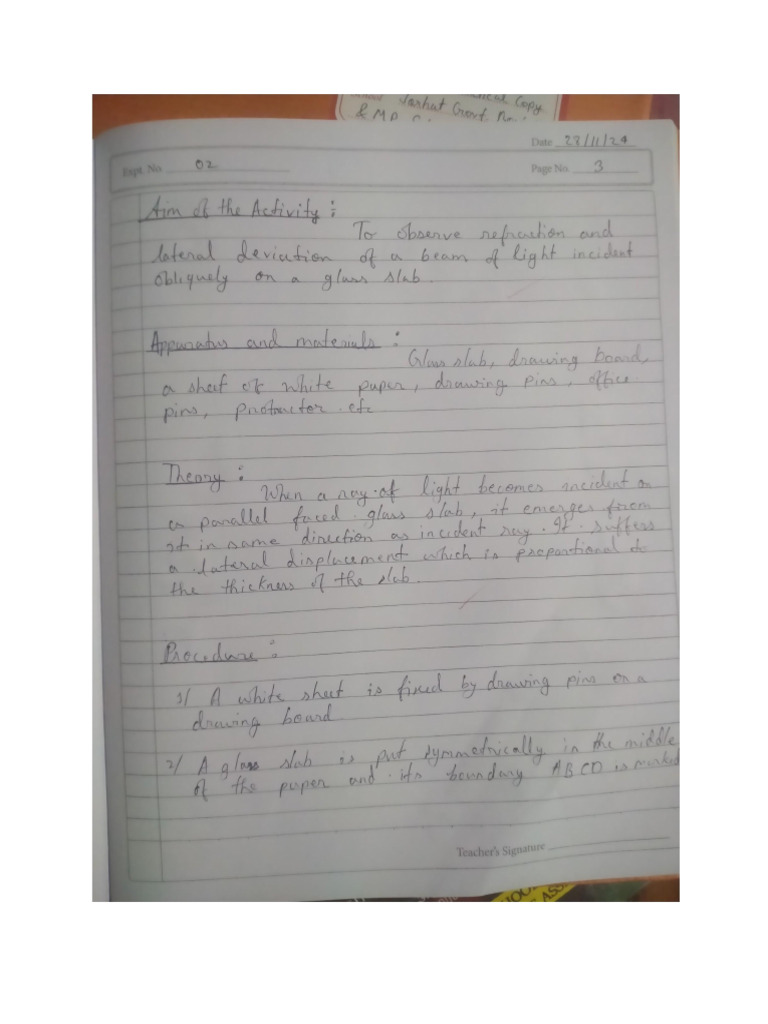 Jorhat Govt.
Copy
& M.P.
Date 28/11/24
Expt. No. 02
Page No. 3
Aim of the Activity :
To observe refraction and
lateral deviation of a beam of light incident
obliquely on a glass slab.
Apparatus and materials :
Glass slab, drawing board,
a sheet of white paper, drawing pins, office
pins, protractor etc
Theory :
When a ray of light becomes incident on
a parallel faced glass slab, it emerges from
it in same direction as incident ray. It suffers
a lateral displacement which is proportional to
the thickness of the slab.
Procedure :
1) A white sheet is fixed by drawing pins on a
drawing board
2) A glass slab is put symmetrically in the middle
of the paper and its boundary ABCD is marked
Teacher's Signature